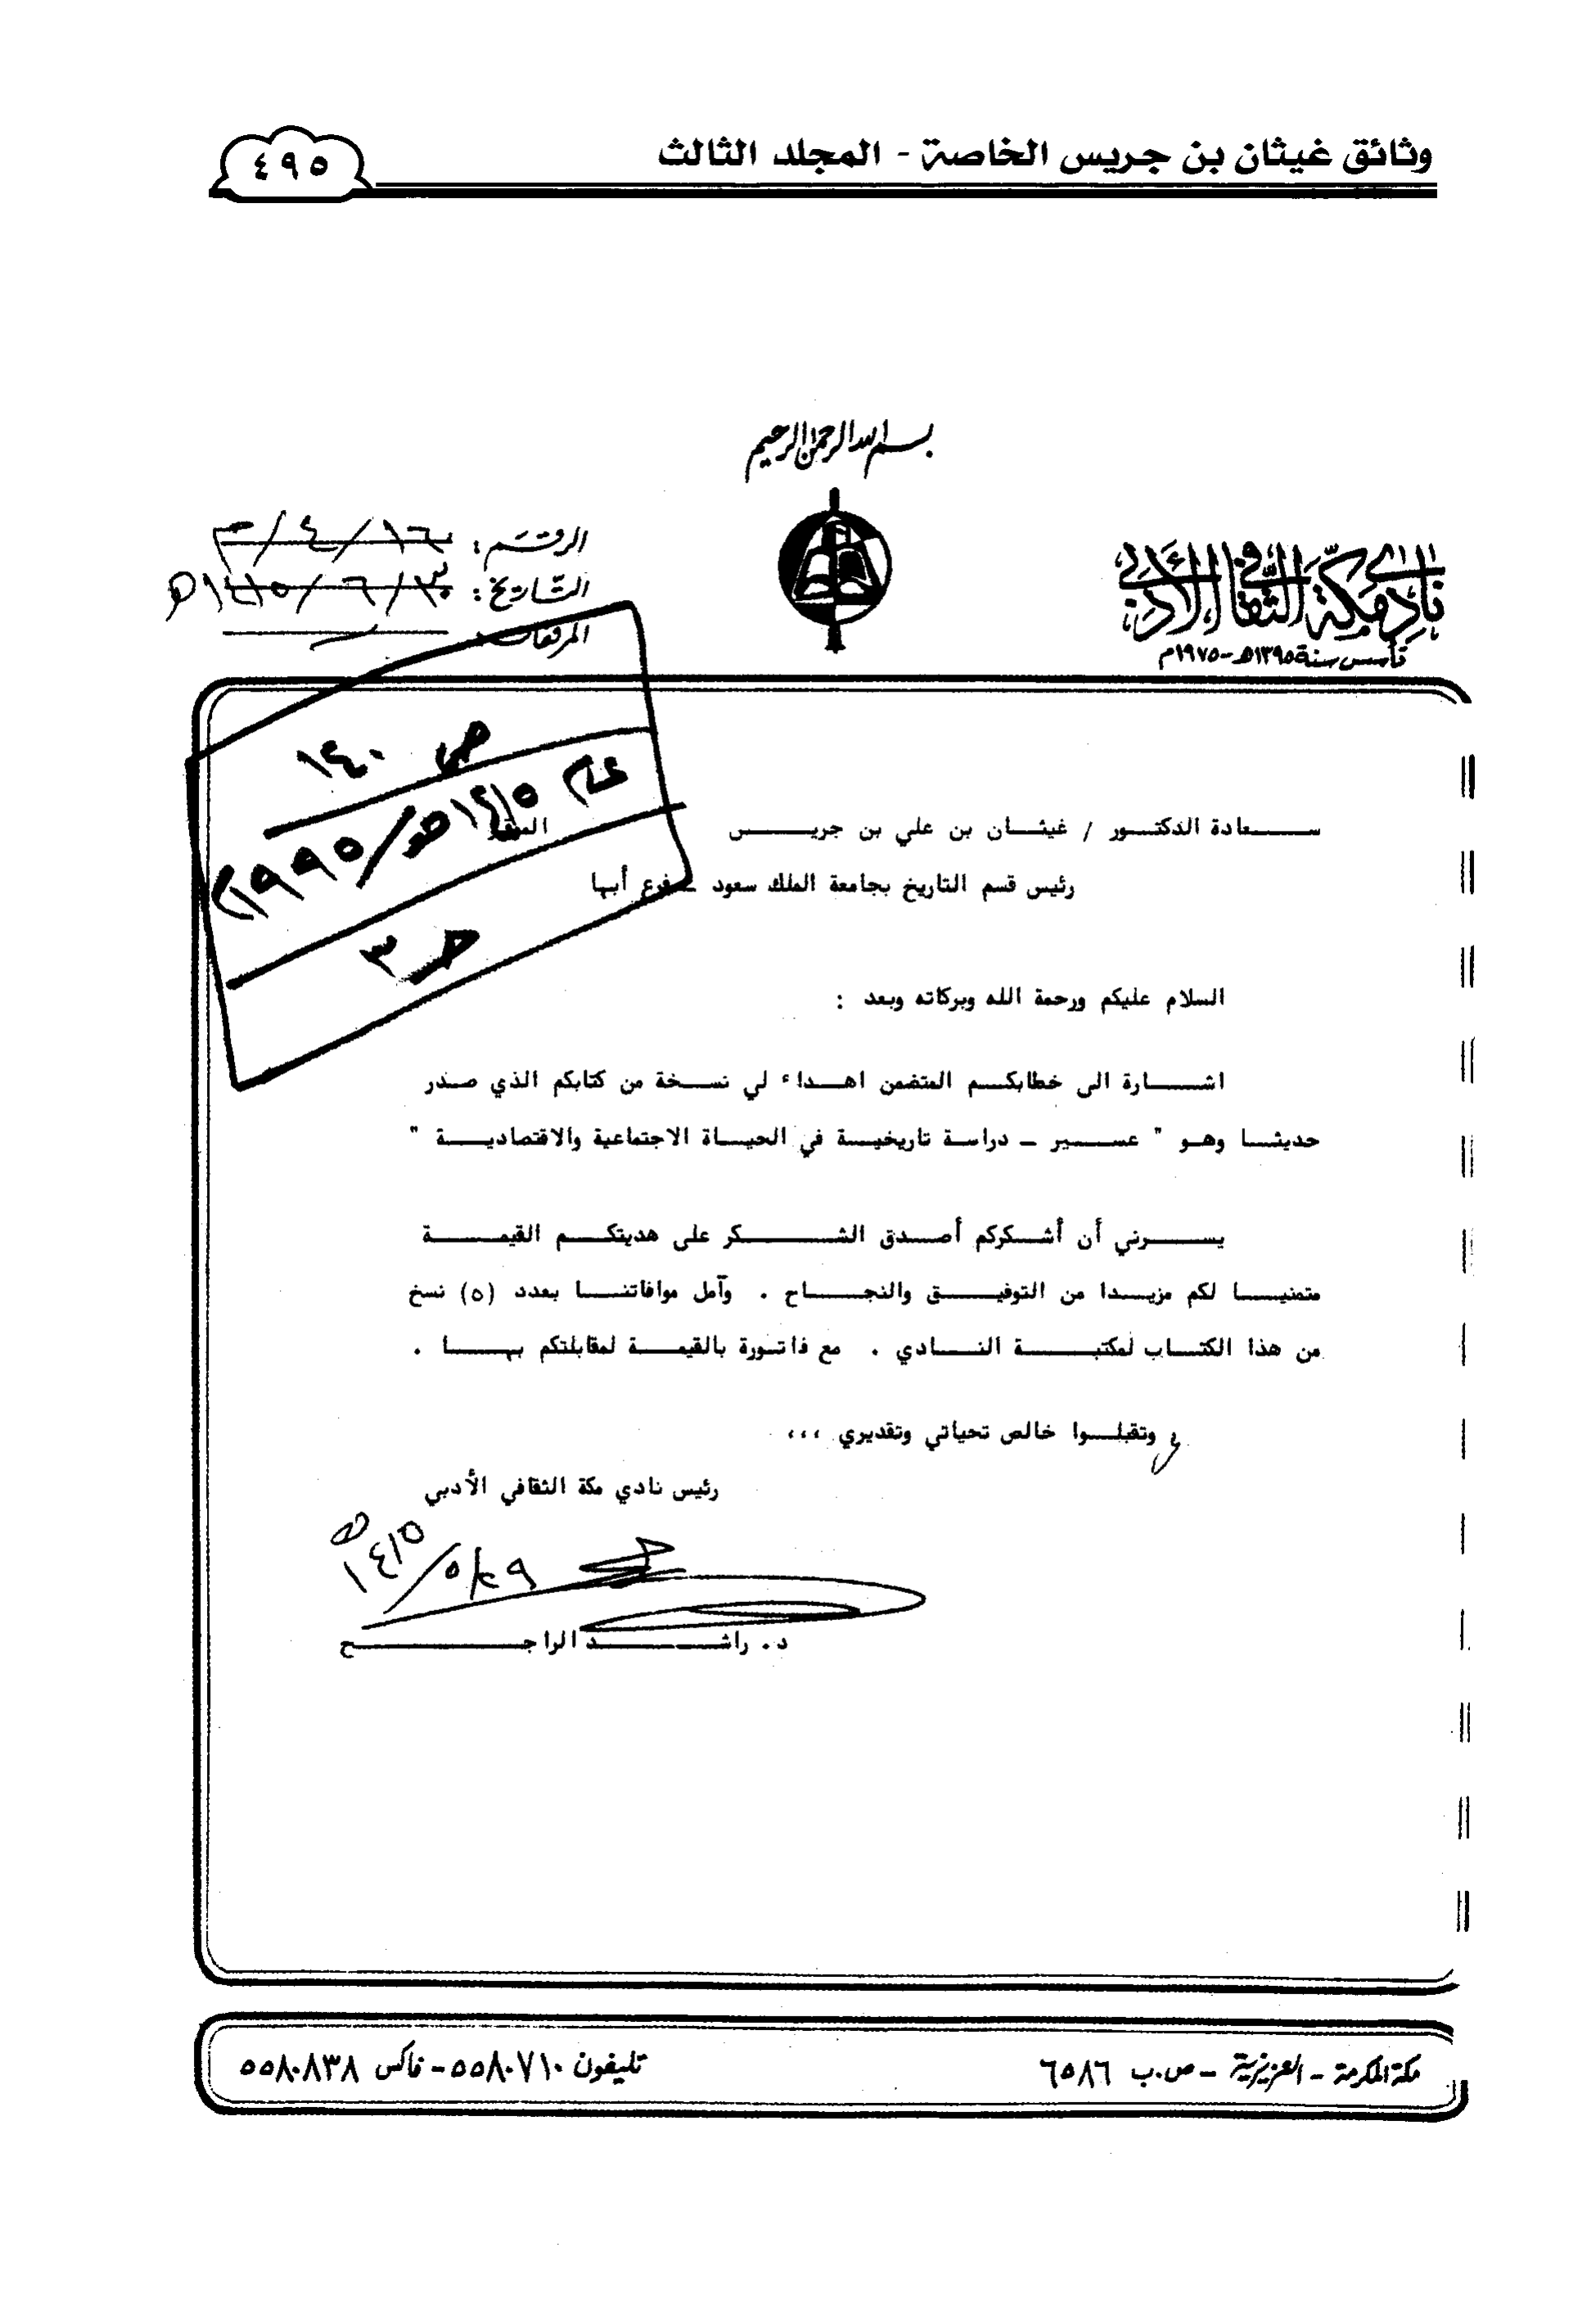 وثائق غيثان بن جريس الخاصة - المجلد الثالث
٤٩٥
بسم الله الرحمن الرحيم
نادي مكة الثقافي الأدبي
تأسس سنة ١٣٩٥هـ-١٩٧٥م
الرقم:
التاريخ:
المرفقات:
ص ١٤٠
عام ١٤١٥هـ/١٩٩٥م
حـ ٣
سعادة الدكتور / غيثان بن علي بن جريس الموقر
رئيس قسم التاريخ بجامعة الملك سعود – فرع أبها
السلام عليكم ورحمة الله وبركاته وبعد :
اشارة الى خطابكم المتضمن اهداء لي نسخة من كتابكم الذي صدر
حديثا وهو " عسير – دراسة تاريخية في الحياة الاجتماعية والاقتصادية "
يسرني أن أشكركم أصدق الشكر على هديتكم القيمة
متمنيا لكم مزيدا من التوفيق والنجاح . وآمل موافاتنا بعدد (٥) نسخ
من هذا الكتاب لمكتبة النادي . مع فاتورة بالقيمة لمقابلتكم بها .
وتقبلوا خالص تحياتي وتقديري ،،،
رئيس نادي مكة الثقافي الأدبي
د. راشد الراجح
مكة المكرمة - العزيزية - ص.ب ٦٥٨٦
تليفون ٥٥٨٠٧١٠ - فاكس ٥٥٨٠٨٣٨